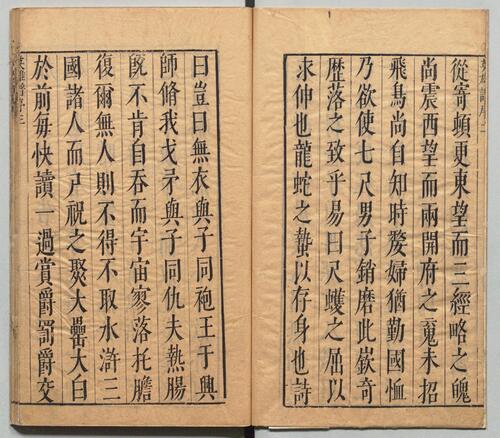 從寄頓更東望而三經略之魄
尚震西望而兩開府之冤未招
飛鳥尚自知時嫠婦猶勤國恤
乃欲使七尺男子銷磨此嶔奇
歷落之致乎易曰尺蠖之屈以
求伸也龍蛇之蟄以存身也詩
曰豈曰無衣與子同袍王于興
師脩我戈矛與子同仇夫熱腸
既不肯自吞而宇宙寥落托膽
復爾無人則不得不取水滸三
國諸人而尸祝之聚大罍大白
於前每快讀一過賞爵罰爵交
英雄譜序三